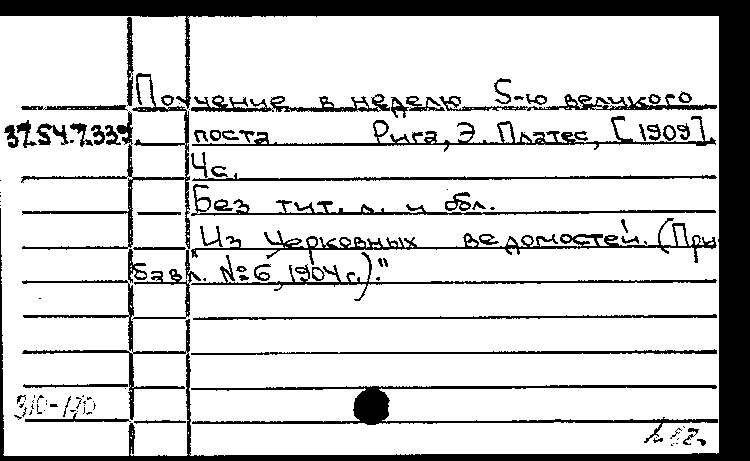 Поучение в неделю 5-ю великого
37.54.7.339. поста. Рига, Э. Платес, [1909].
4с.
Без тит. л. и обл.
"Из Церковных ведомостей. (При
бавл. №6, 1904 г.)."
310-170